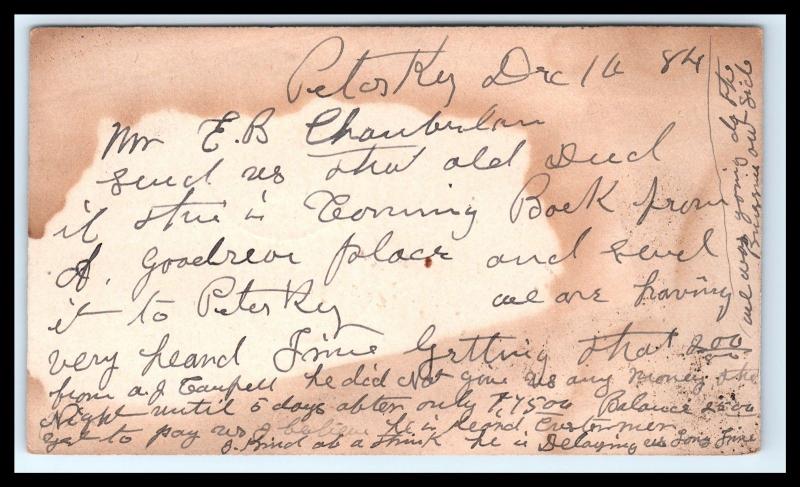 Petoskey Dec 16 84
Mr E.B Chamberlan
send us that old Deed
it this is Coming Back from
A. place and send
it to Petoskey we are having
very heard Time Getting that 200
from a. J Campell he did Not give us any money the
Night until 5 days abter only 1,7500 Balance 2500
yet to pay us I believe he is heard Custormer
he is Delaying us Long Time
we was going do the
Buisnes our side